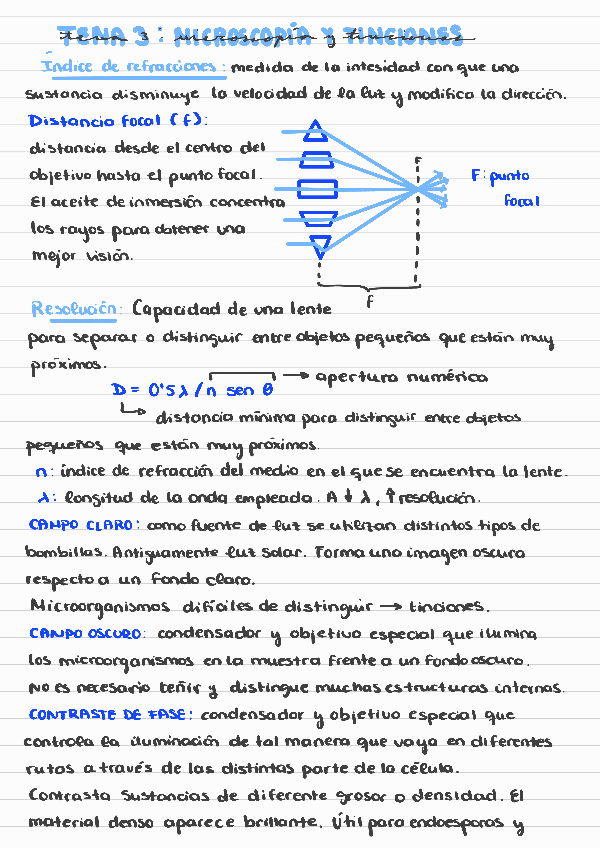 TEMA 3: MICROSCOPÍA Y TINCIONES
Índice de refracciones: medida de la intesidad con que una
sustancia disminuye la velocidad de la luz y modifica la dirección.
Distancia focal (f):
distancia desde el centro del
objetivo hasta el punto focal.
El aceite de inmersión concentra
los rayos para obtener una
mejor visión.
F
F: punto
focal
f
Resolución: Capacidad de una lente
para separar o distinguir entre objetos pequeños que están muy
próximos.
D = 0'5 λ / n sen θ → apertura numérica
↳ distancia mínima para distinguir entre objetos
pequeños que están muy próximos.
n: índice de refracción del medio en el que se encuentra la lente.
λ: longitud de la onda empleada. A ↓ λ, ↑ resolución.
CAMPO CLARO: como fuente de luz se utilizan distintos tipos de
bombillas. Antiguamente luz solar. Forma una imagen oscura
respecto a un fondo claro.
Microorganismos difíciles de distinguir → tinciones.
CAMPO OSCURO: condensador y objetivo especial que ilumina
los microorganismos en la muestra frente a un fondo oscuro.
No es necesario teñir y distingue muchas estructuras internas.
CONTRASTE DE FASE: condensador y objetivo especial que
controla la iluminación de tal manera que vaya en diferentes
rutas a través de las distintas parte de la célula.
Contrasta sustancias de diferente grosor o densidad. El
material denso aparece brillante. Útil para endosporas y